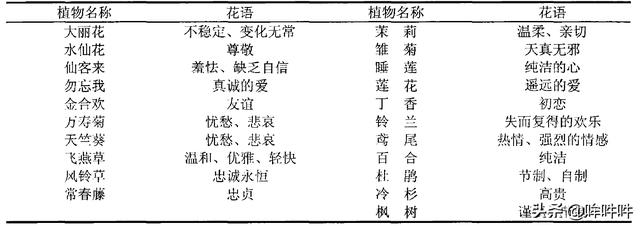 植物名称 花语 植物名称 花语
大丽花 不稳定、变化无常 茉莉 温柔、亲切
水仙花 尊敬 雏菊 天真无邪
仙客来 羞怯、缺乏自信 睡莲 纯洁的心
勿忘我 真诚的爱 莲花 遥远的爱
金合欢 友谊 丁香 初恋
万寿菊 忧愁、悲哀 铃兰 失而复得的欢乐
天竺葵 忧愁、悲哀 鸢尾 热情、强烈的情感
飞燕草 温和、优雅、轻快 百合 纯洁
风铃草 忠诚永恒 杜鹃 节制、自制
常春藤 忠贞 冷杉 高贵
枫树 谨
头条@哞吽吽